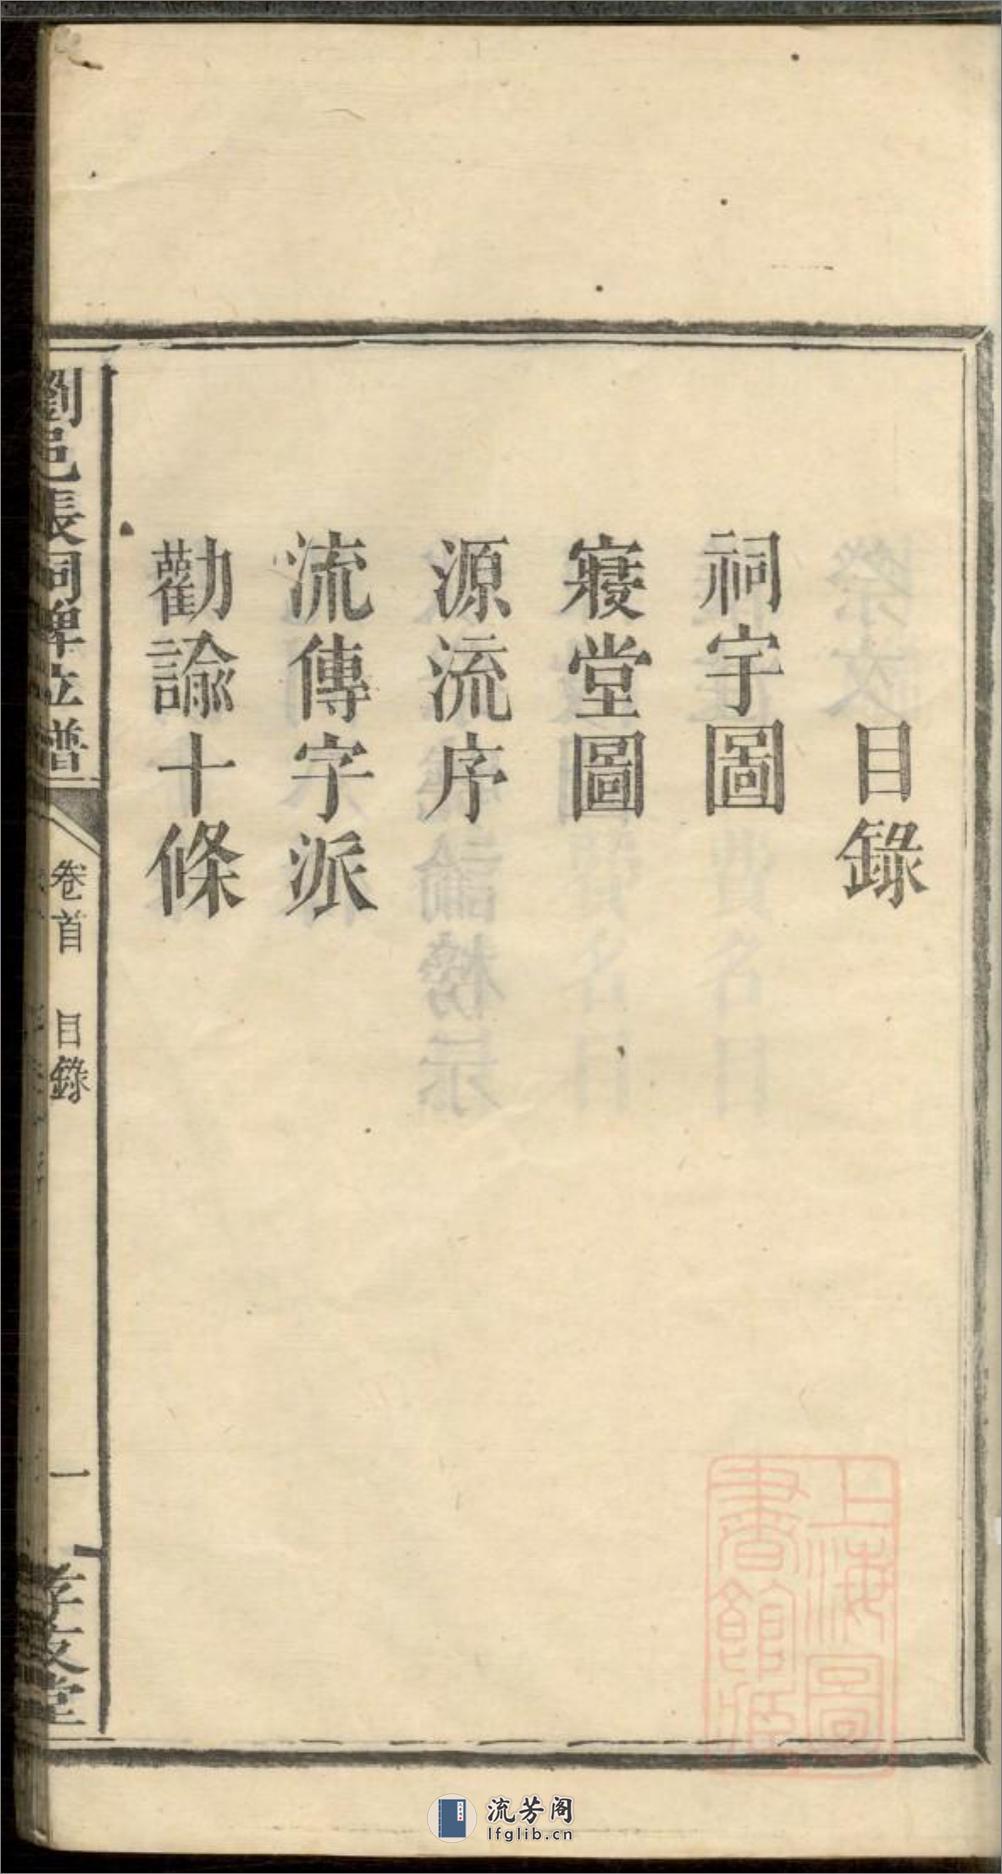 目錄
祠宇圖
寢堂圖
源流序
流傳字派
勸諭十條
劉邑張祠碑位譜
卷首 目錄
一
孝友堂
上海圖
書館藏
流芳阁
lfglib.cn